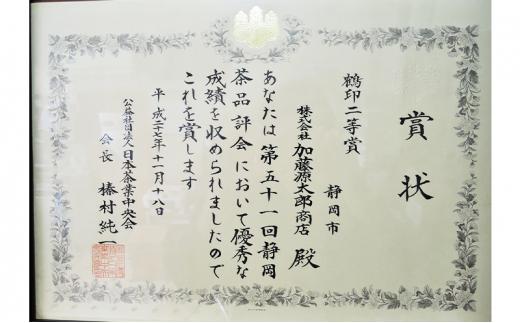 賞状
鶴印二等賞
静岡市
株式会社 加藤源太郎商店 殿
あなたは第五十一回静岡
茶品評会において優秀な
成績を収められましたので
これを賞します
平成二十七年十一月十八日
公益社団法人日本茶業中央会
会長 榛村純一